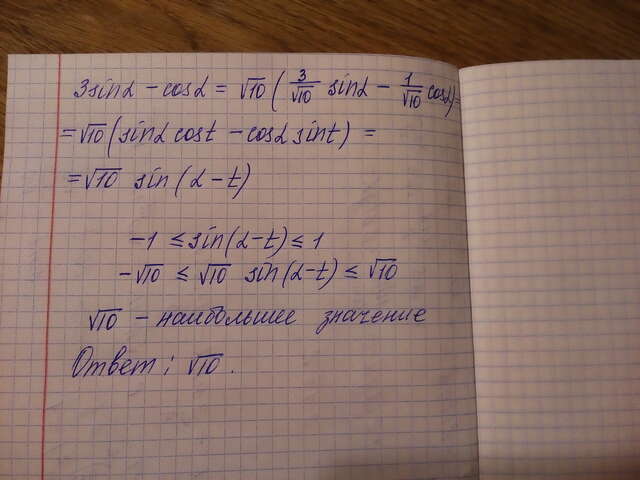 3sinα - cosα = √10 (3/√10 sinα - 1/√10 cosα) =
= √10 (sinα cost - cosα sint) =
= √10 sin(α-t)
-1 ≤ sin(α-t) ≤ 1
-√10 ≤ √10 sin(α-t) ≤ √10
√10 - наибольшее значение
Ответ: √10.